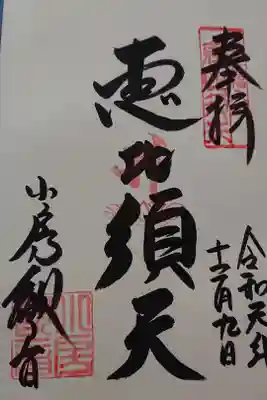 奉拝
令和元年
十二月九日
恵比須天
小房観音